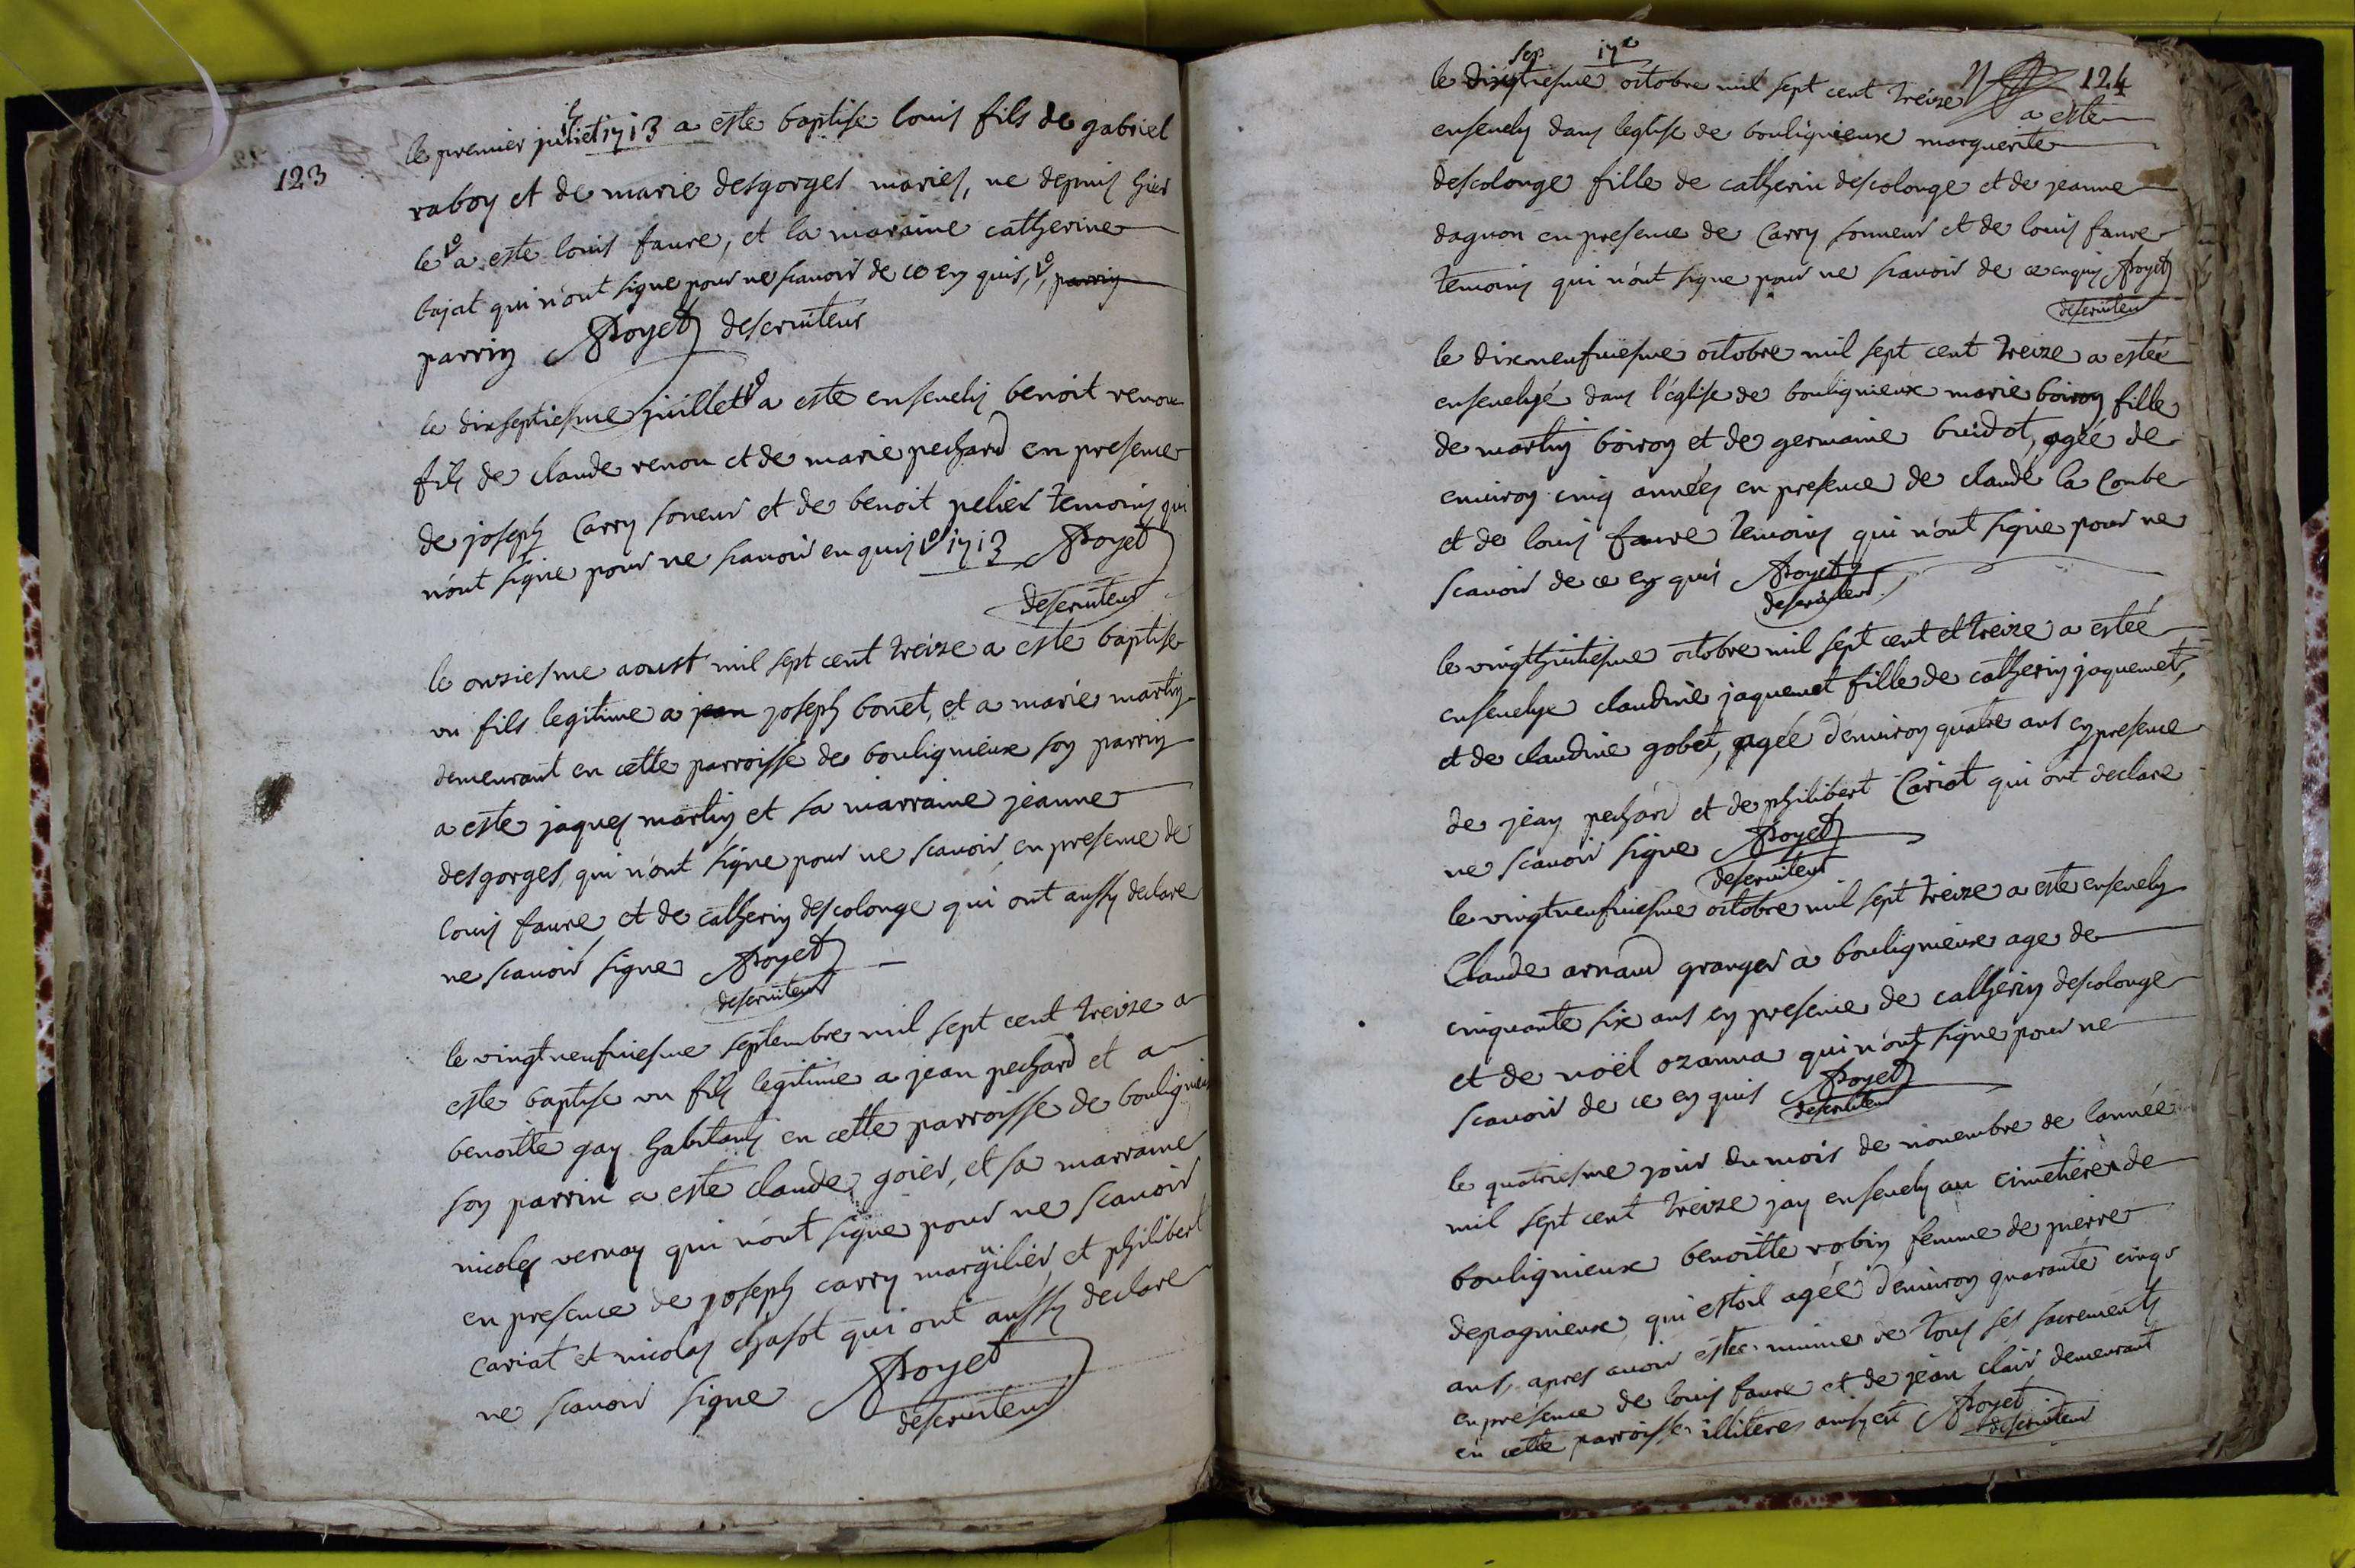 123
le premier juillet 1713 a esté baptise louis fils de gabriel
raboy et de marie desgorges mariés, ne depuis hier
le a esté louis faure, et la maraine catherine
bajat qui n'ont signe pour ne scavoir de ce en quis, parrin
parrin Royet deserviteur
le dixseptiesme juillet a esté ensevely benoit renou
fils de claude renou et de marie pechard en presence
de joseph Carry soneur et de benoit pelier temoins qui
n'ont signe pour ne scavoir enquis 1713 Royet
deserviteur
le onziesme aoust mil sept cent treize a esté baptise
un fils legitime a jean joseph bonet, et a marie martin
demeurant en cette parroisse de boulignieux son parrin
a esté jaques martin et sa marraine jeanne
desgorges, qui n'ont signe pour ne scavoir, en presence de
louis faure et de catherin descolonge qui ont aussy declare
ne scavoir signe Royet
deserviteur
le vingtneufviesme septembre mil sept cent treize a
esté baptise un fils legitime a jean pechard et a
benoitte gay habitants en cette parroisse de boulignieux
son parrin a esté claude goier, et sa marraine
nicole vernay qui n'ont signe pour ne scavoir
en presence de joseph carry margüilier, et philibert
cariat et nicolas chasot qui ont aussy declare
ne scavoir signe Royet
deserviteur
124
sep 17e
le dixseptiesme octobre mil sept cent treize a esté
ensevely dans leglise de boulignieux marguerite
descolonge fille de catherin descolonge et de jeanne
dagnon en presence de Carry sonneur et de louis faure
temoins qui n'ont signe pour ne scavoir de ce enquis Royet
deserviteur
le dixneufviesme octobre mil sept cent treize a estéé
ensevelyé dans l'église de boulignieux marie boiron fille
de martin boiron et de germaine buidot, agéé de
environ cinq annéés en presence de claude la Combe
et de louis faure temoins qui n'ont signe pour ne
scavoir de ce en quis Royet
deserviteur
le vingthuitiesme octobre mil sept cent et treize a estéé
ensevelye claudine jaquemet fille de catherin jaquemet,
et de claudine gobet, agéé d'environ quatre ans en presence
de jean pechard et de philibert Cariat qui ont declare
ne scavoir signe Royet
deserviteur
le vingtneufviesme octobre mil sept treize a esté ensevely
Claude arnaud granger à boulignieux age de
cinquante six ans en presence de catherin descolonge
et de noël ozanna qui n'ont signe pour ne
scavoir de ce en quis Royet
deserviteur
le quatriesme jour du mois de novembre de lannéé
mil sept cent treize jay ensevely au cimetiere de
boulignieux benoitte robin femme de pierre
depagnieux, qui estoit agéé d'environ quarante cinq
ans, apres avoir estéé munie de tous ses sacrements
en présence de louis faure et de jean clair demeurant
en cette parroisse illiteres Royet
deserviteur